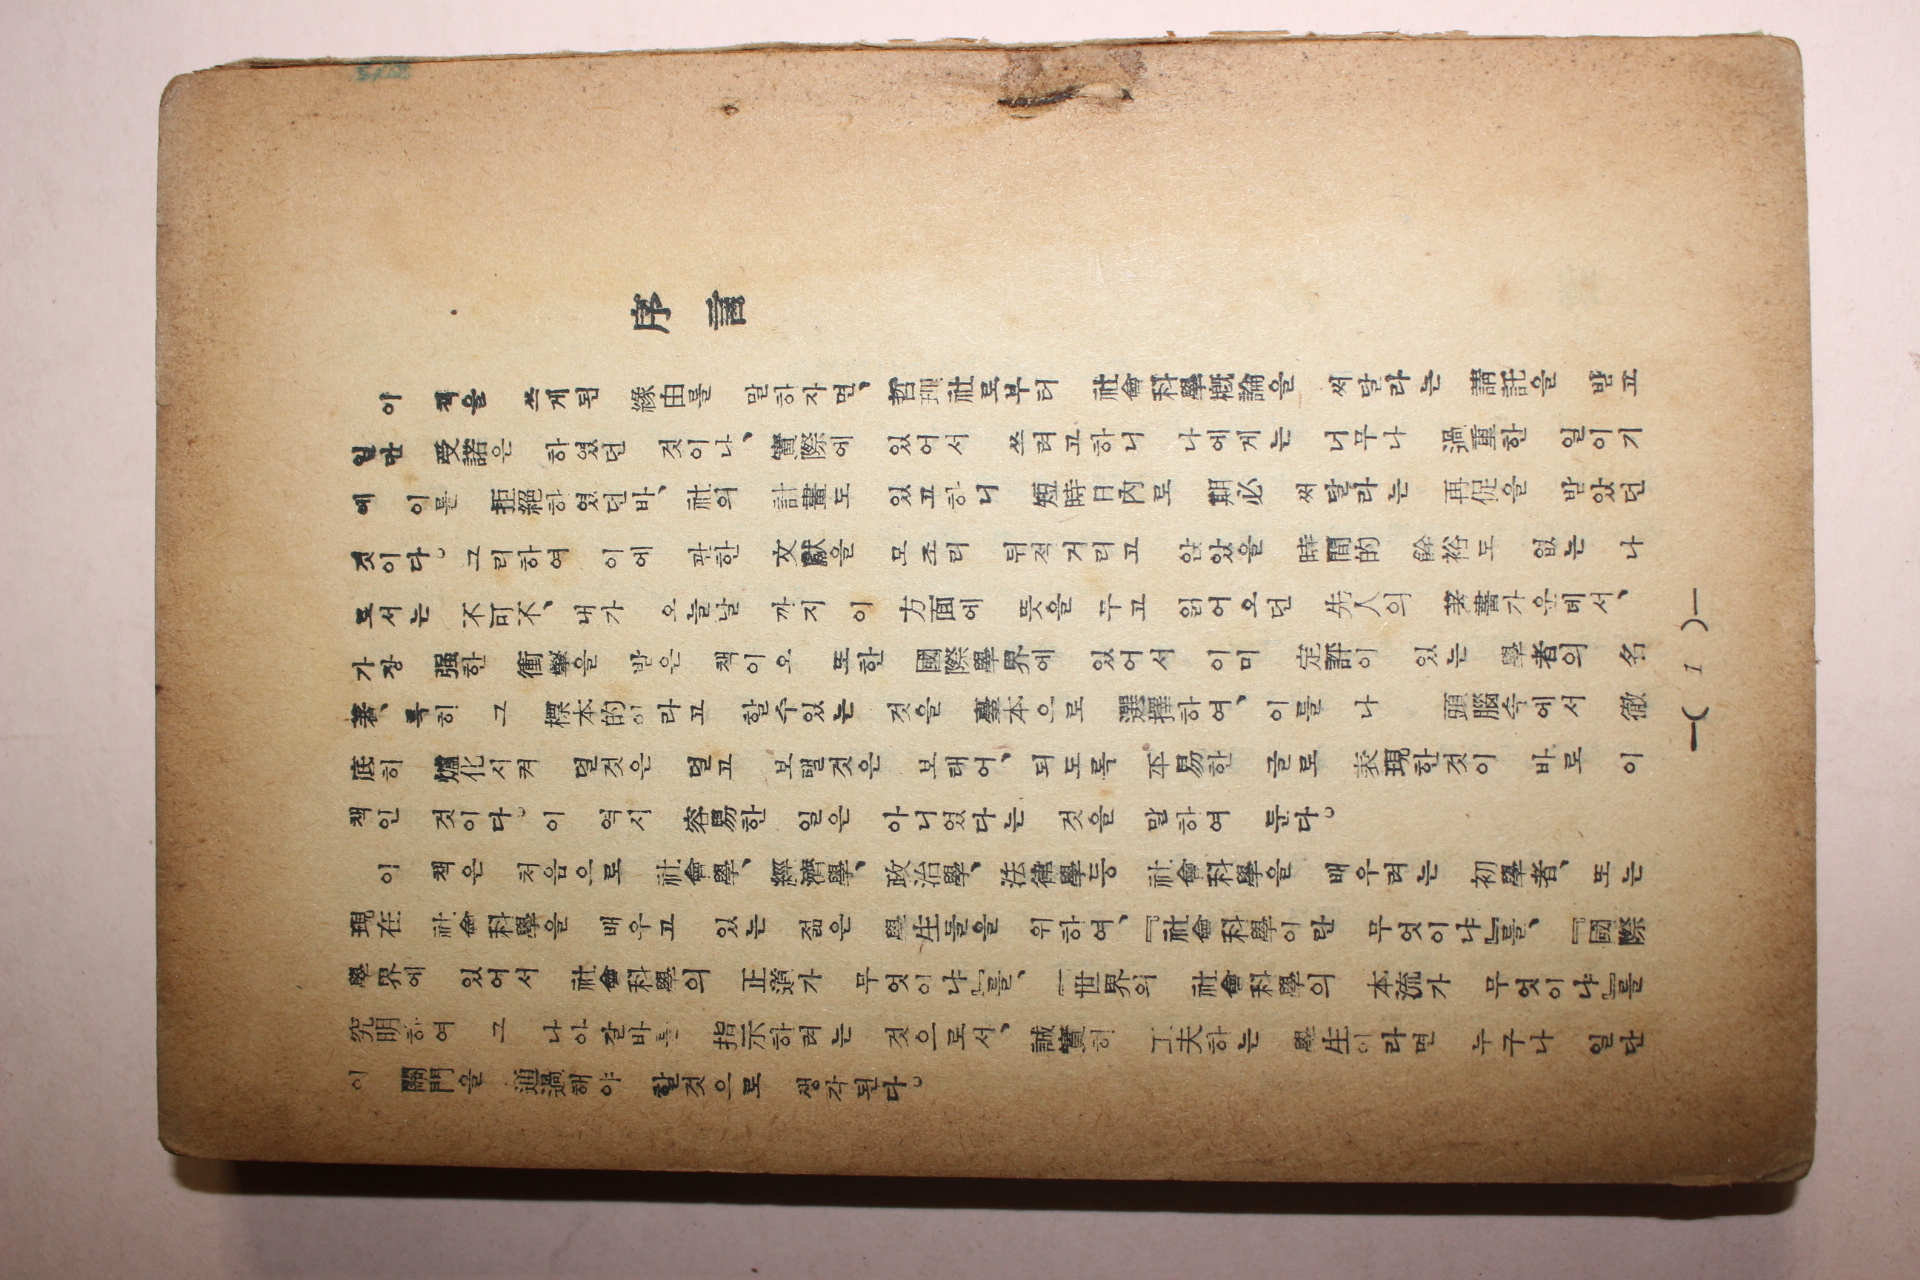 序言
이 책을 쓰게된 緣由를 말하자면, 哲理社로부터 社會科學槪論을 써달라는 請託을 받고
일단 受諾은 하였던 것이나, 實際에 있어서 쓰려고하니 나에게는 너무나 過重한 일이기
에 이를 拒絕하였던바, 社의 計畫도 있고하니 短時日內로 期必 써달라는 再促을 받았던
것이다。 그리하여 이에 관한 文獻을 모조리 뒤적거리고 앉았을 時間的 餘裕도 없는 나
로서는 不可不, 내가 오늘날 까지 이 方面에 뜻을 두고 읽어오던 先人의 著書가운데서,
가장 强한 衝擊을 받은 책이오 또한 國際學界에 있어서 이미 定評이 있는 學者의 名
著, 특히 그 標本的이라고 할수있는 것을 臺本으로 選擇하여, 이를 나 頭腦속에서 徹
底히 爐化시켜 덜것은 덜고 보탤것은 보태어, 되도록 平易한 글로 表現한것이 바로 이
책인 것이다。 이 역시 容易한 일은 아니었다는 것을 말하여 둔다。
이 책은 처음으로 社會學, 經濟學, 政治學, 法律學등 社會科學을 배우려는 初學者, 또는
現在 社會科學을 배우고 있는 젊은 學生들을 위하여, 『社會科學이란 무엇이냐』를, 『國際
學界에 있어서 社會科學의 正道가 무엇이냐』를, 『世界의 社會科學의 本流가 무엇이냐』를
究明하여 그 나아갈바를 指示하려는 것으로서, 誠實히 工夫하는 學生이라면 누구나 일단
이 關門을 通過해야 할것으로 생각된다。
—( 1 )—